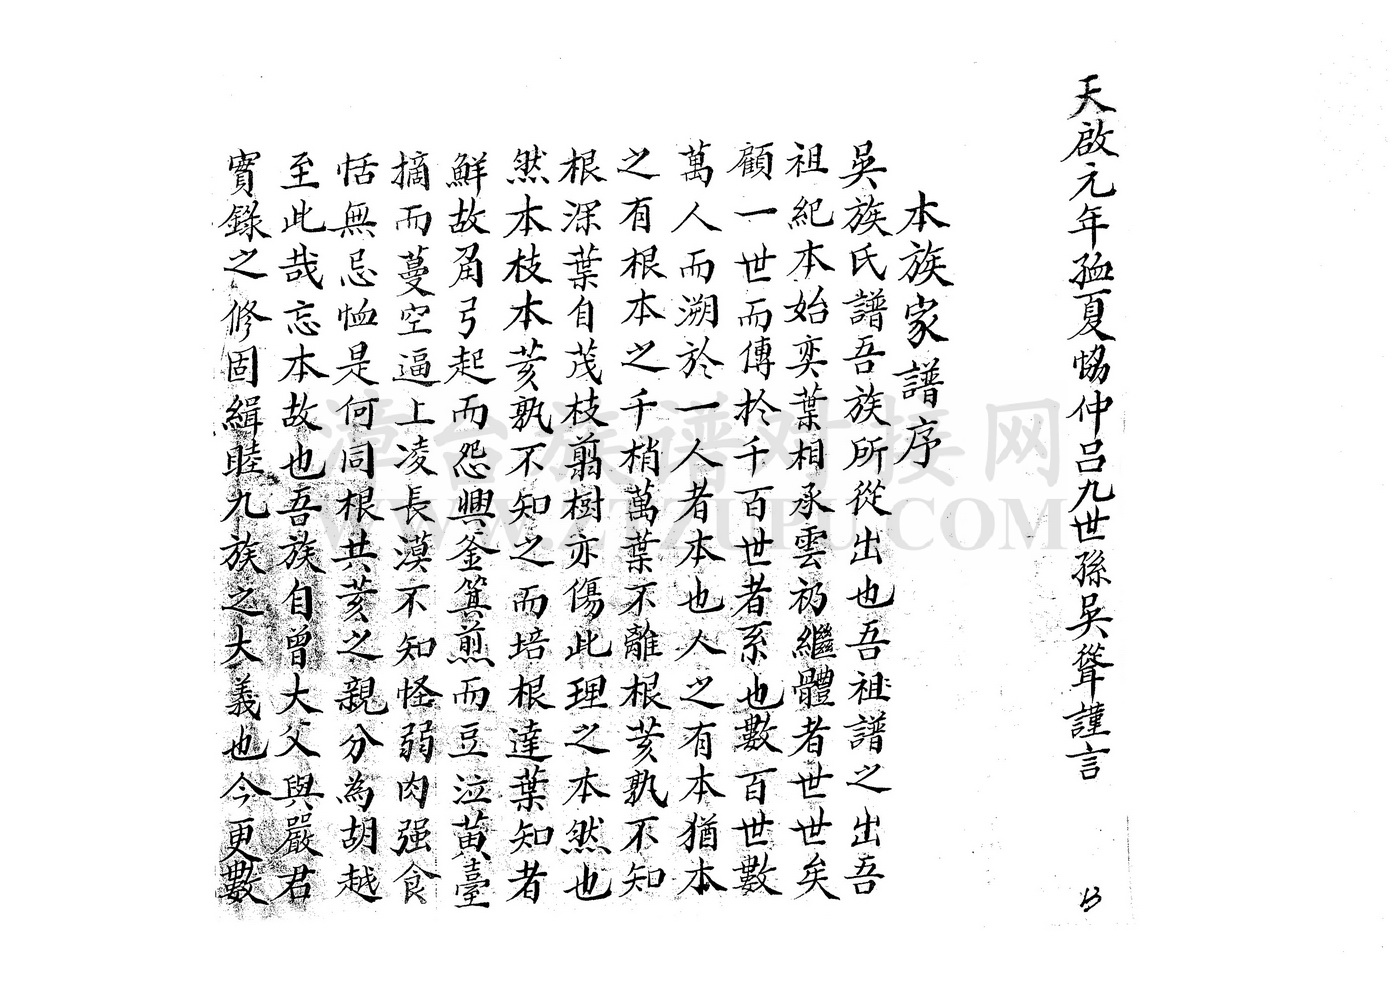 天啟元年孟夏恊仲呂九世孫吳聳謹言
本族家譜序
吳族氏譜吾族所從出也吾祖譜之出吾
祖紀本始奕葉相承雲礽繼體者世世矣
顧一世而傳於千百世者系也數百世數
萬人而溯於一人者本也人之有本猶本
之有根本之千梢萬葉不離根荄孰不知
根深葉自茂枝翦樹亦傷此理之本然也
然本枝本荄孰不知之而培根達葉知者
鮮故角弓起而怨興釜箕煎而豆泣黃臺
摘而蔓空逼上凌長漠不知怪弱肉强食
恬無忌恤是何同根共荄之親分為胡越
至此哉忘本故也吾族自曾大父與嚴君
實錄之修固緝睦九族之大義也今更數
13
澶台族谱对接网
WWW.ZTZUPU.COM